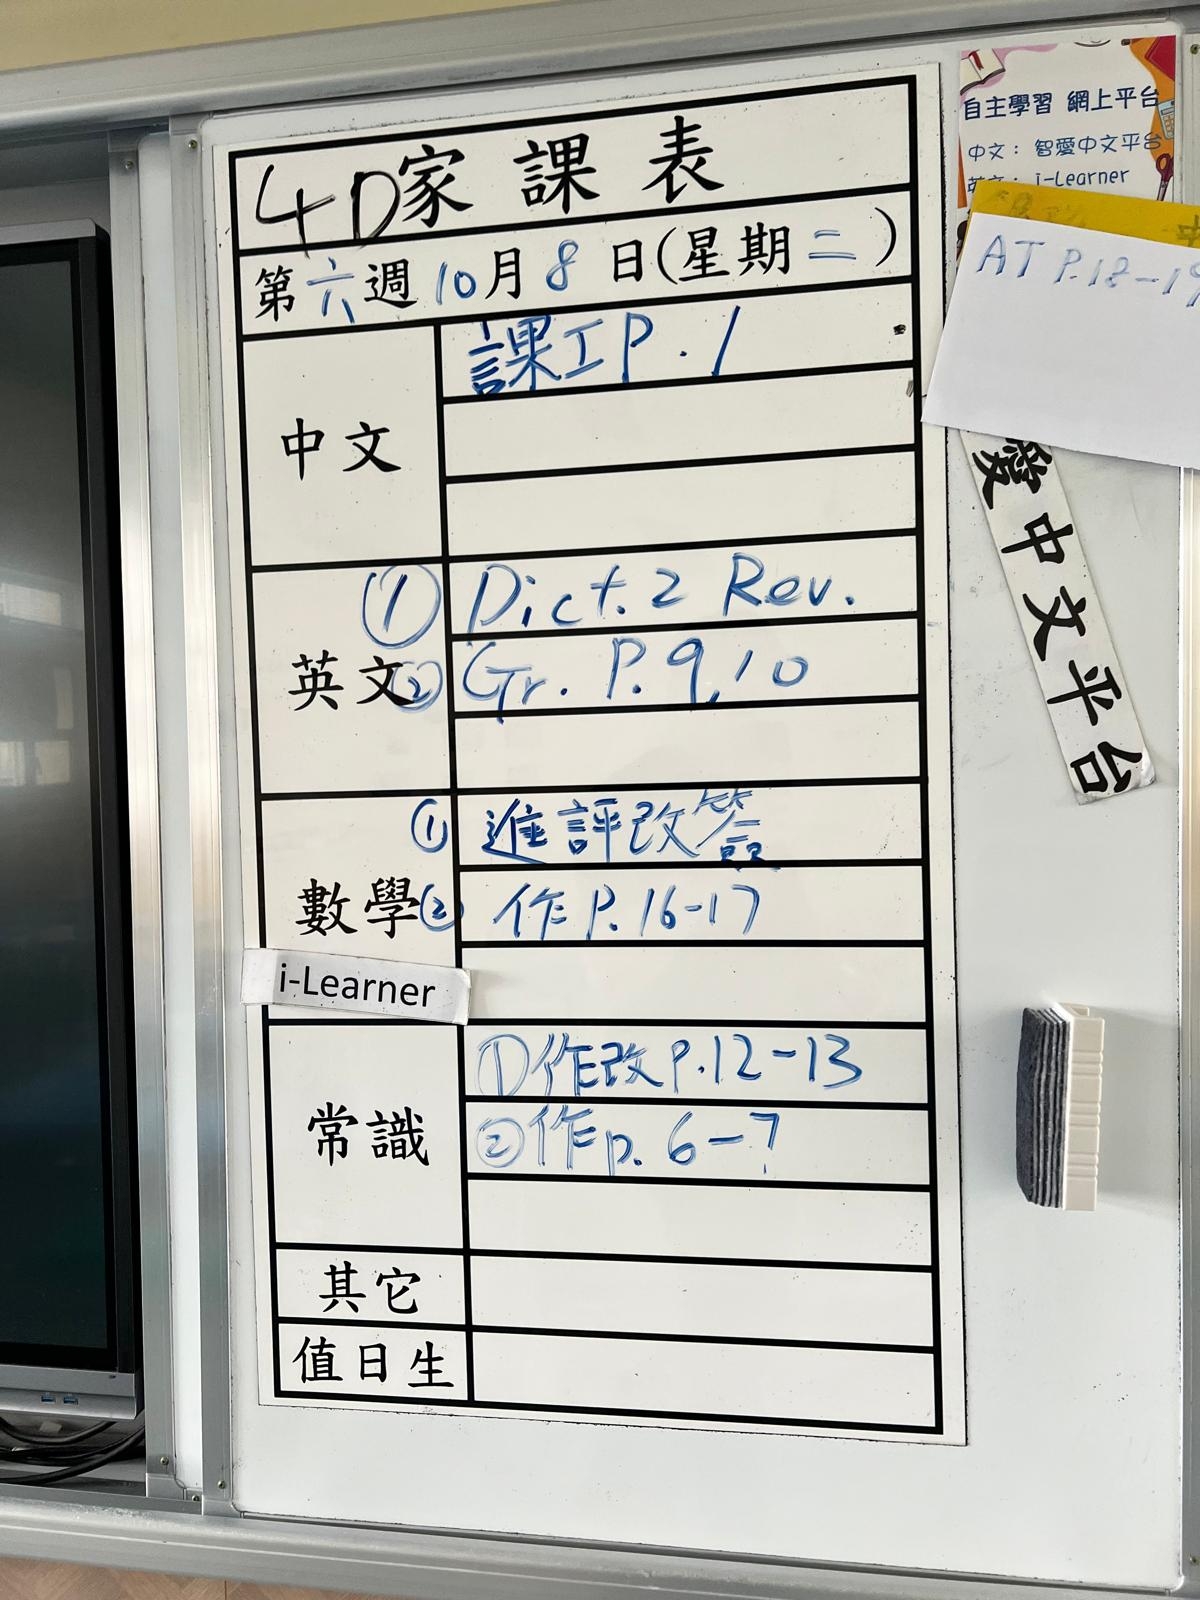 4D家課表
第六週10月8日(星期二)
中文
課工P.1
英文
① Dict. 2 Rev.
② Gr. P.9,10
數學
① 進評改簽
② 作P.16-17
i-Learner
常識
①作改P.12-13
②作p.6-7
其它
值日生
自主學習 網上平台
中文：智愛中文平台
英文：i-Learner
AT P.18-19
愛中文平台